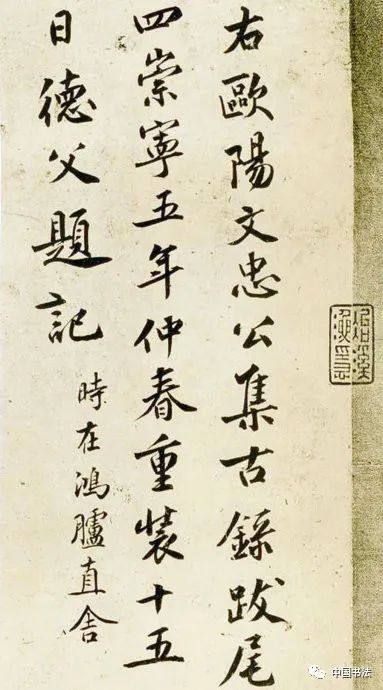 右歐陽文忠公集古錄跋尾
四崇寧五年仲春重裝十五
日德父題記
時在鴻臚直舍
中国书法